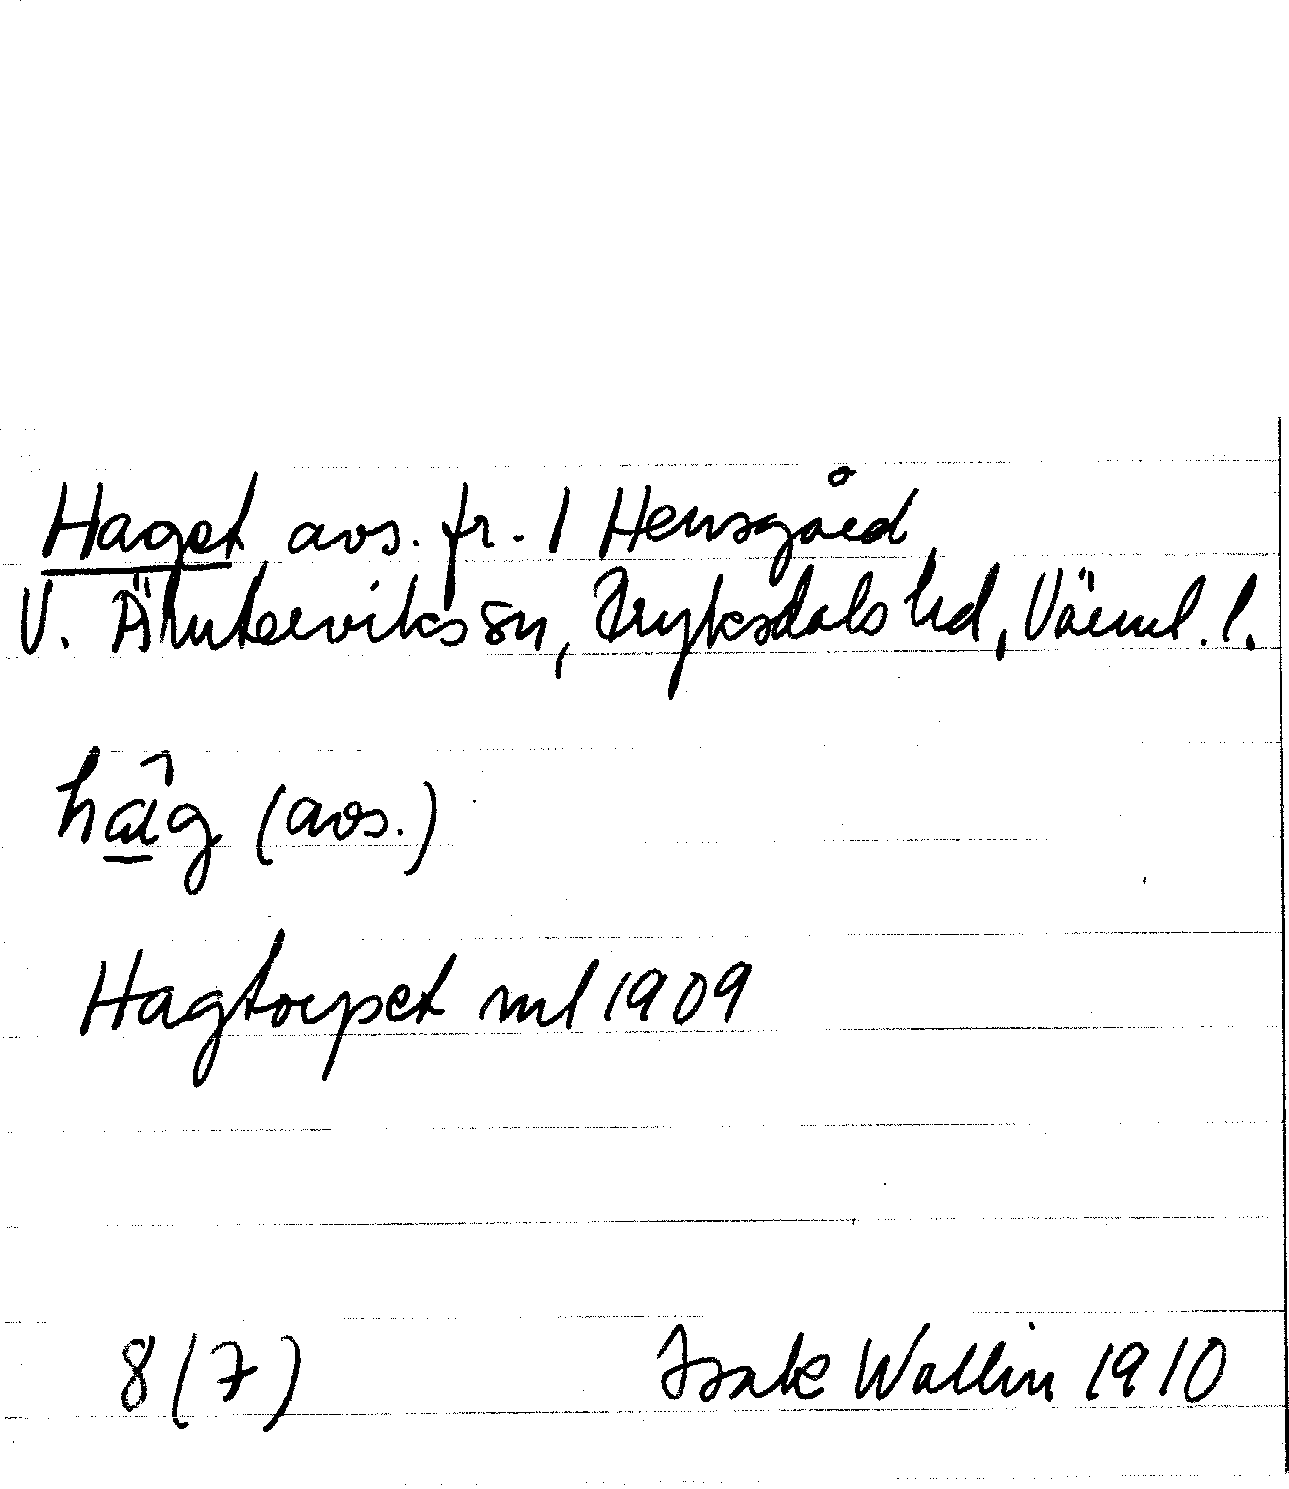 Haget avs. fr. 1 Hensgård
V. Ämterviks sn, Fryksdals hd, Värml. l.
(avs.)
Hagtorpet ml 1909
8(7) Isak Wallin 1910